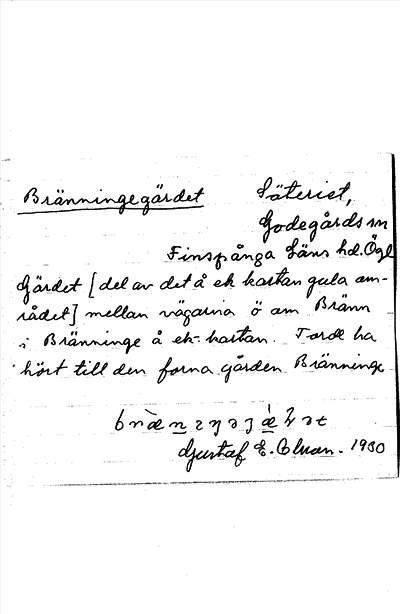 Bränningegärdet
Säteriet,
Godegårds sn
Finspånga läns hd. Ögl
Gärdet [del av det å ek kartan gula om-
rådet] mellan vägarna ö om Bränn
i Bränninge å ek-kartan. Torde ha
hört till den forna gården Bränninge
Gustaf E. 1930